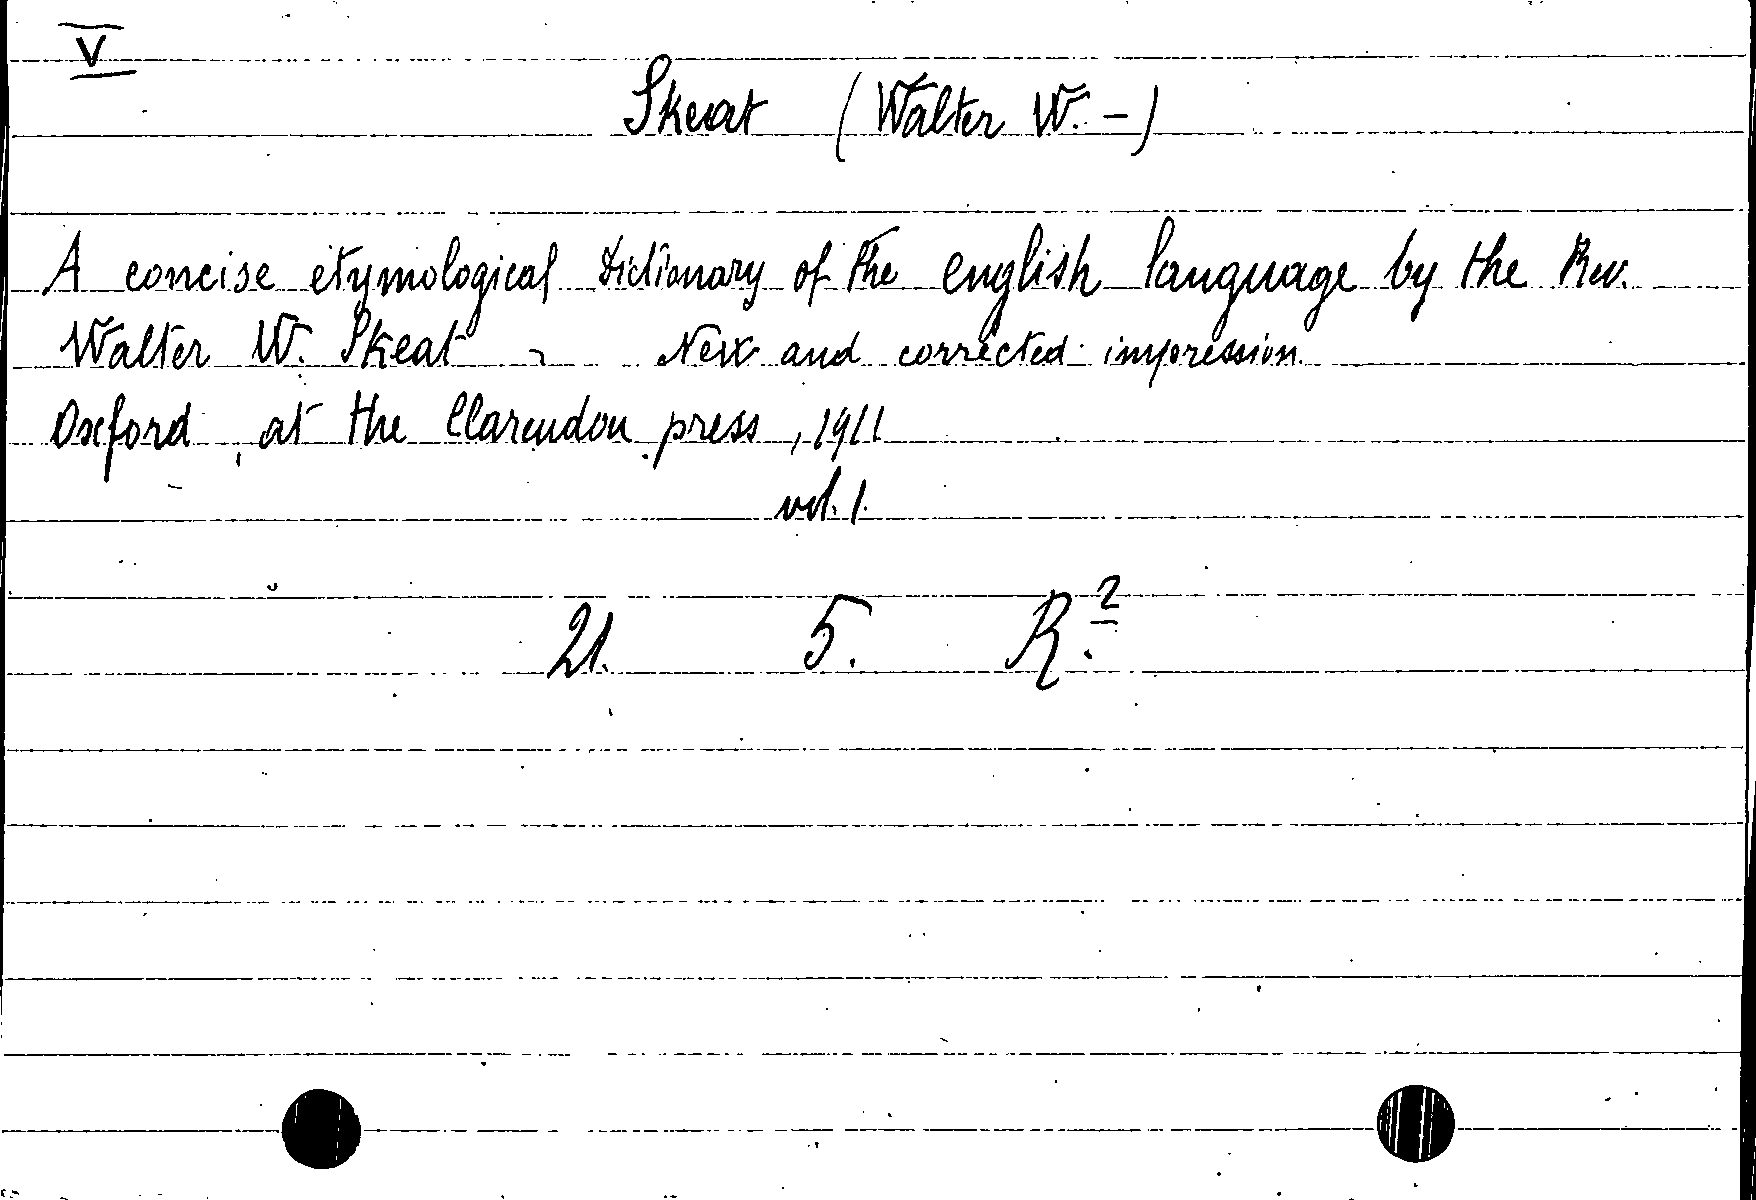 V
Skeat (Walter W. -)
A concise etymological dictionary of the english language by the Rev.
Walter W. Skeat - New and corrected impression
Oxford, at the Clarendon press, 1911
vol. 1.
21. 5. R.²